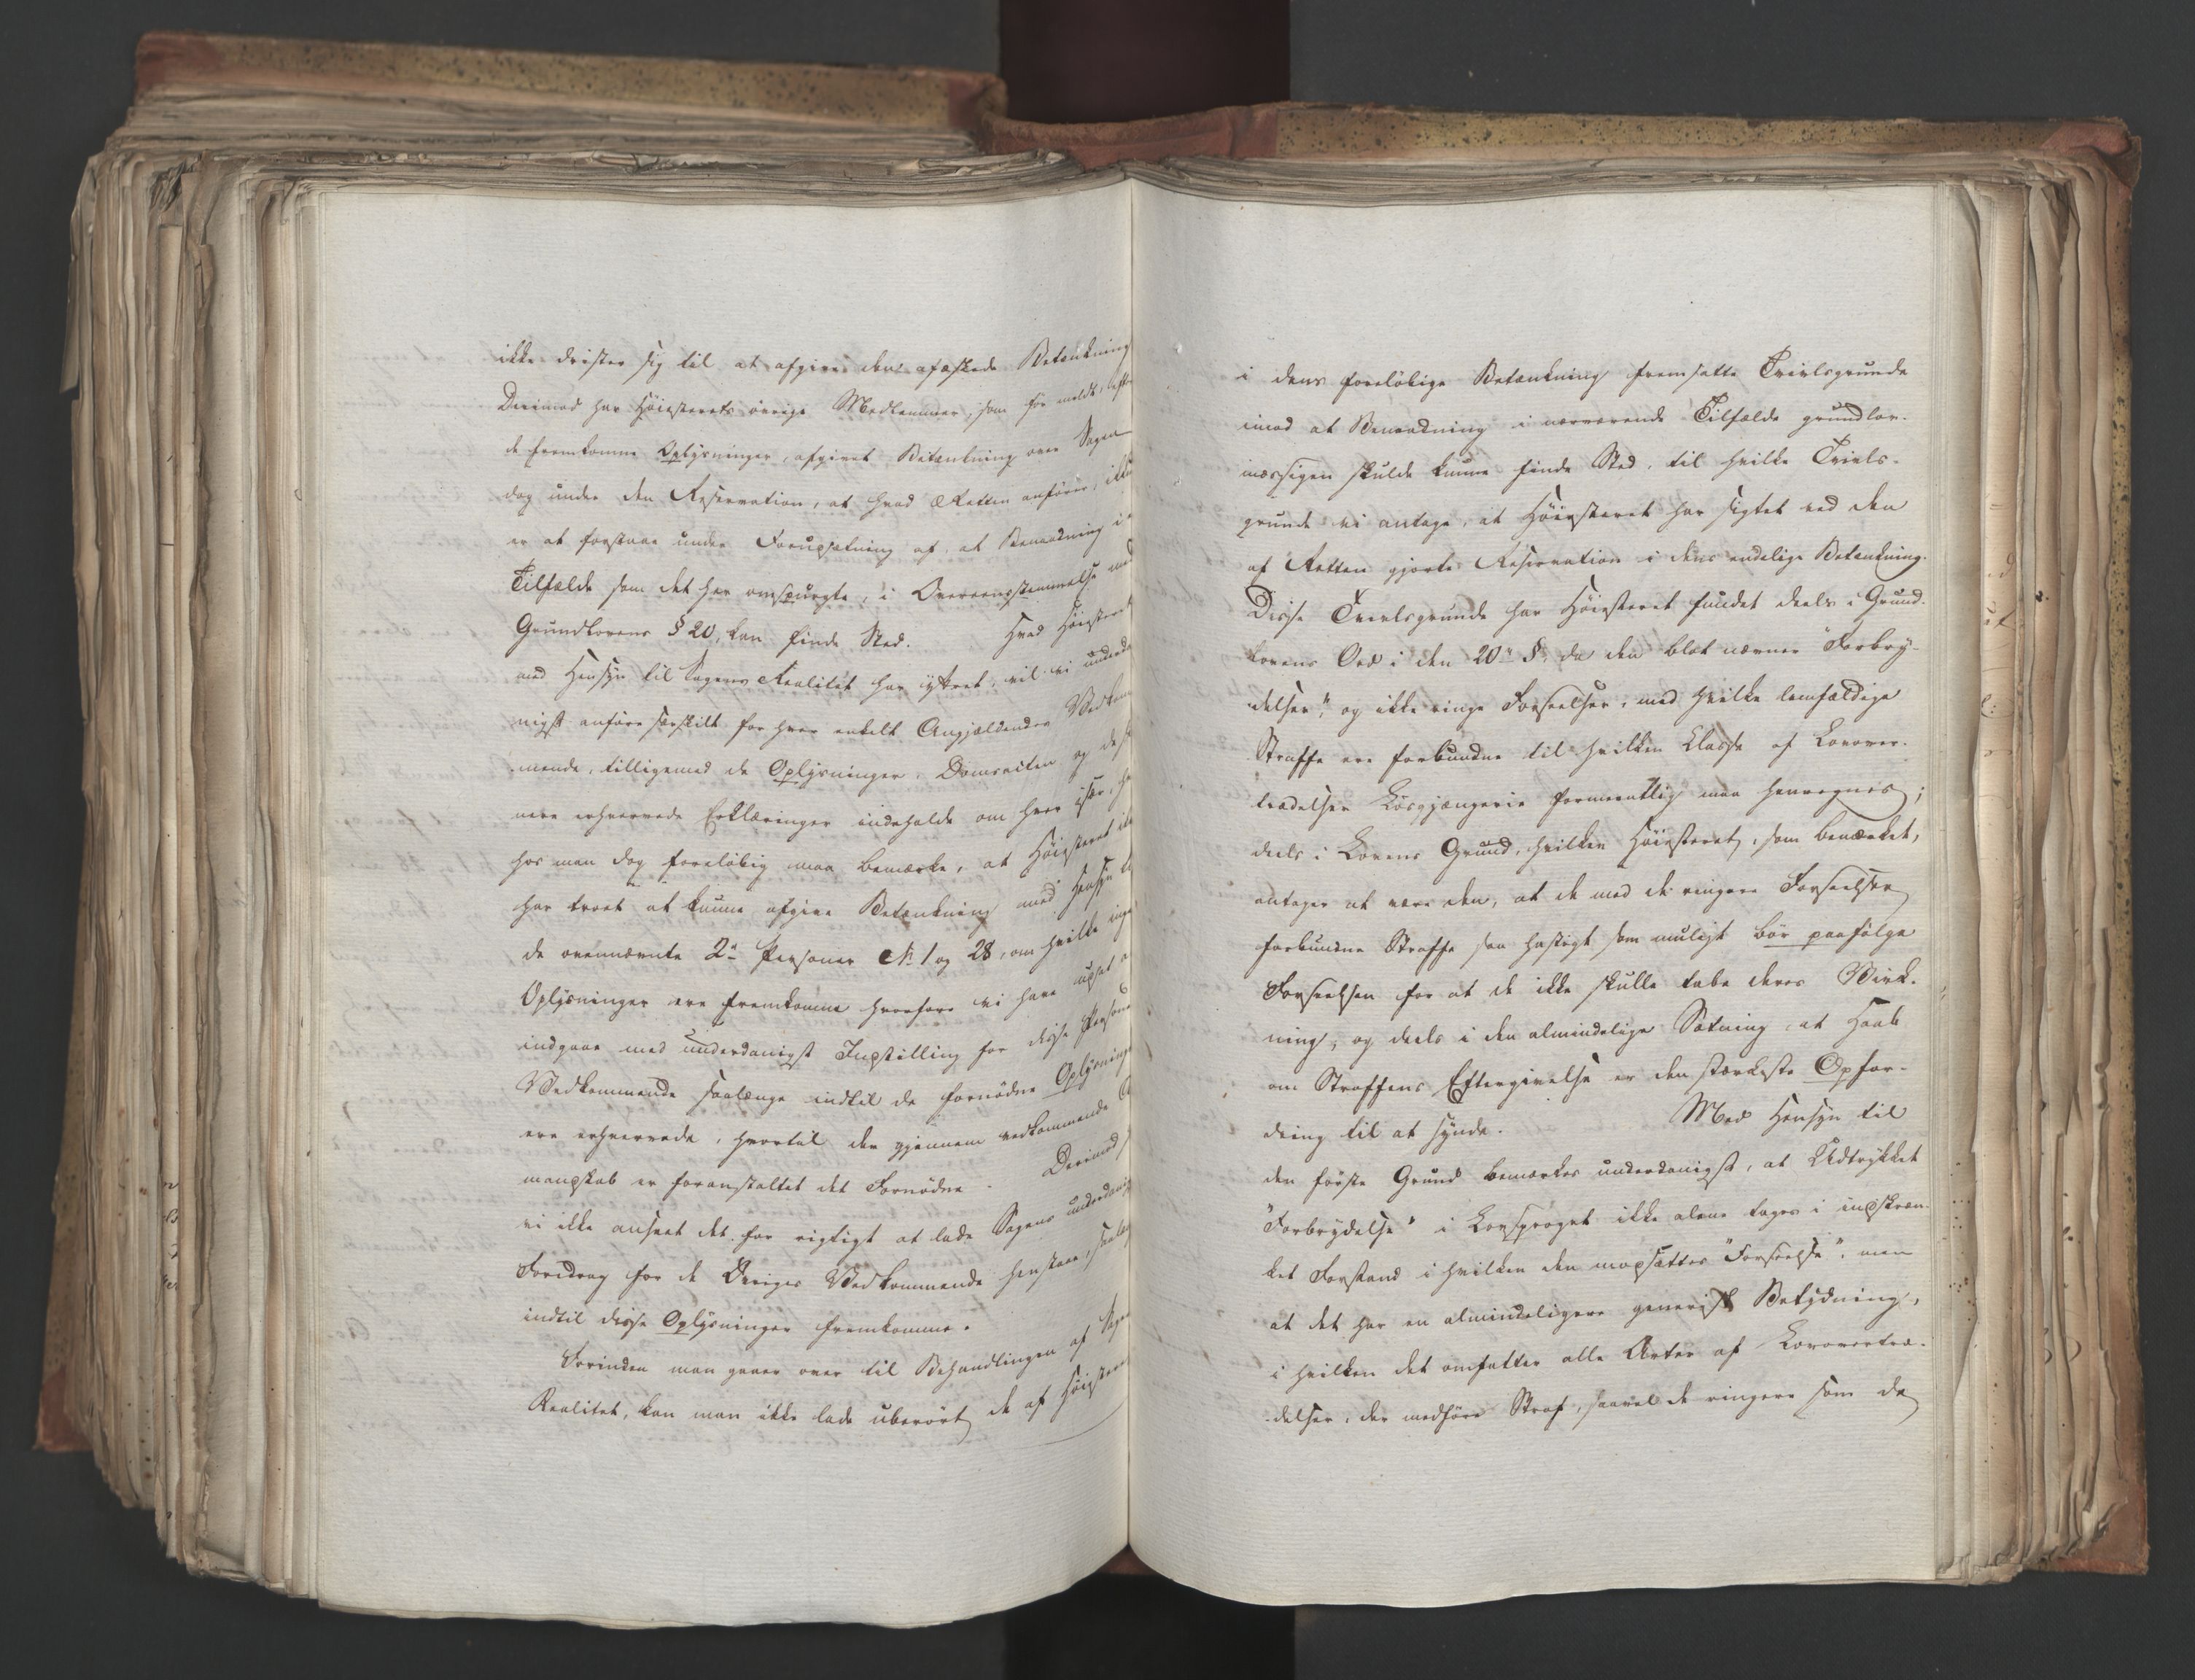 ikke drister sig til at afgive den afæskede Betænkning
Derimod har Höiesterets övrige Medlemmer, som før meldt, efter
de fremkomne Oplysninger, afgivet Betænkning over Sagen
dog under den Reservation, at hvad Retten anfører, ikke
er at forstaae under Forudsætning af, at Benaadning i
Tilfælde som det her omspurgte, i Overeensstemmelse med
Grundlovens § 20, kan finde Sted. Hvad Höiesteret
med Hensyn til Sagens Realitet har yttret, vil vi underda
nigst anføre særskilt for hver enkelt Angjældendes Vedkom
mende, tilligemed de Oplysninger, Domsacten og de se
nere erhvervede Erklæringer indeholde om hver især, hv
hos man dog foreløbig maa bemærke, at Höiesteret ikke
har troet at kunne afgive Betænkning med Hensyn til
de ovennævnte 2de Personer No 1 og 28, om hvilke inge
Oplysninger ere fremkomne hvorfore vi have udsat at
indgaae med underdanigst Indstilling for disse Persone
Vedkommende saalænge indtil de fornødne Oplysninge
ere erhvervede, hvortil der gjennem vedkommende
mandskab er foranstaltet det Fornødne. Derimod
vi ikke anseet det for rigtigt at lade Sagens underdanig
Foredrag for de Øvriges Vedkommende henstaae, saalæ
indtil disse Oplysninger fremkomme.
Forinden man gaaer over til Behandlingen af Sage
Realitet, kan man ikke lade uberört de af Höiestere
i dens foreløbige Betænkning fremsatte Tvivlsgrunde
imod at Benaadning i nærværende Tilfælde grundlov-
mæssigen skulde kunne finde Sted, til hvilke Tvivls-
grunde vi antage, at Höiesteret har sigtet ved den
af Retten gjorte Reservation i dens endelige Betænkning.
Disse Tvivlsgrunde har Höiesteret fundet deels i Grund-
lovens Ord i den 20de §, da den blot nævner "Forbry-
delser", og ikke ringe Forseelser, med hvilke lemfældige
Straffe ere forbundne til hvilken Classe af Lovover-
trædelser Løsgjængerie formeentlig maa henregnes;
deels i Lovens Grund, hvilken Höiesteret, som bemærket,
antager at være den, at de med de ringere Forseelser
forbundne Straffe saa hastigt som muligt bör paafølge
Forseelsen for at de ikke skulle tabe deres Virk-
ning, og deels i den almindelige Sætning, at Haab
om Straffens Eftergivelse er den stærkeste Opfor-
dring til at synde. Med Hensyn til
den første Grund bemærkes underdanigst, at Udtrykket
"Forbrydelse" i Lovsproget ikke alene tages i indskræn-
ket Forstand i hvilken den modsættes "Forseelse", men
at det har en almindeligere generisk Betydning,
i hvilken det omfatter alle Arter af Lovovertræ-
delser, der medføre Straf, saavel de ringere som de